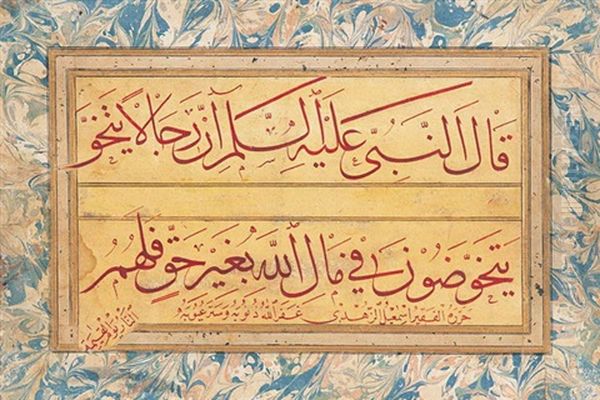 قال النبي عليه السلم ان رجالا يتخو
يتخوضون في مال الله بغير حق فلهم
النار يوم القيمة
حرره الفقير اسمعيل الزهدي غفر الله ذنوبه وستر عيوبه